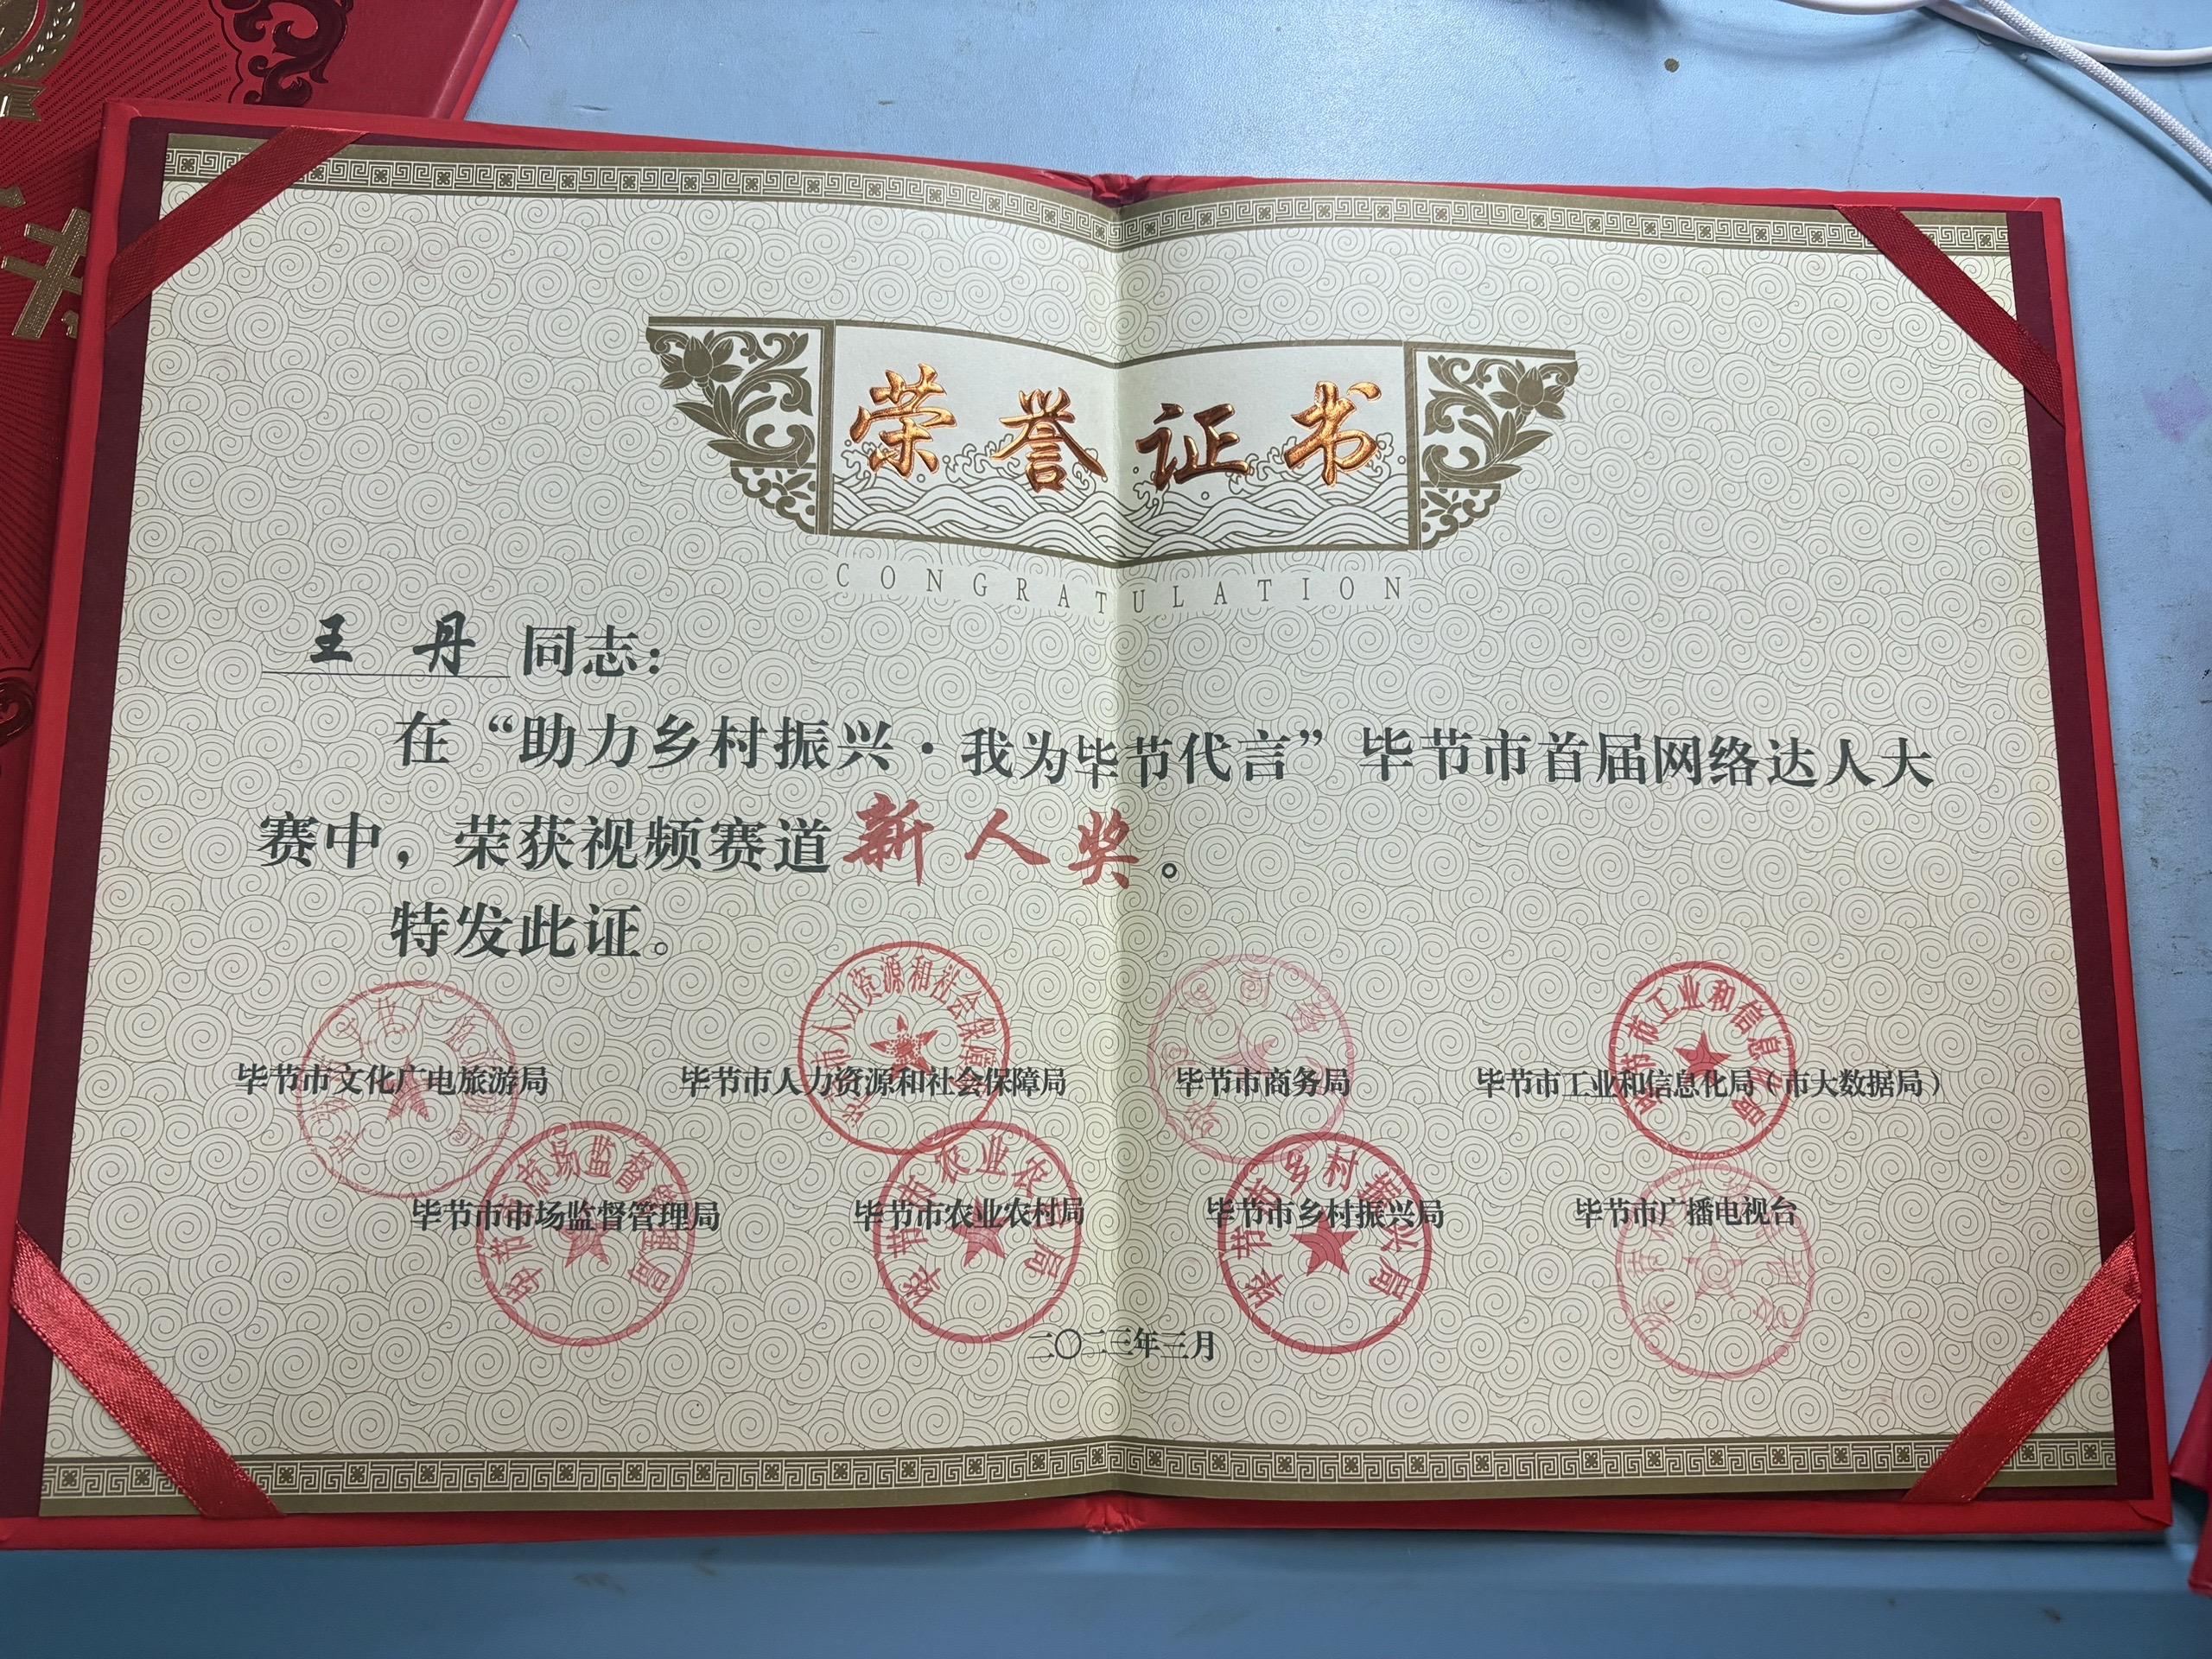 荣誉证书
CONGRATULATION
王丹同志：
在“助力乡村振兴·我为毕节代言”毕节市首届网络达人大
赛中，荣获视频赛道新人奖。
特发此证。
毕节市文化广电旅游局 毕节市人力资源和社会保障局 毕节市商务局 毕节市工业和信息化局（市大数据局）
毕节市市场监督管理局 毕节市农业农村局 毕节市乡村振兴局 毕节市广播电视台
二〇二三年三月